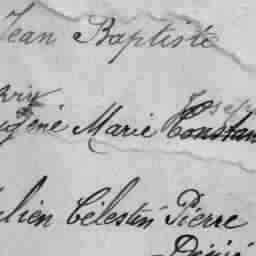 Jean Baptiste
Joseph
Eugène Marie Constan
ulien Célestin Pierre
Désiré